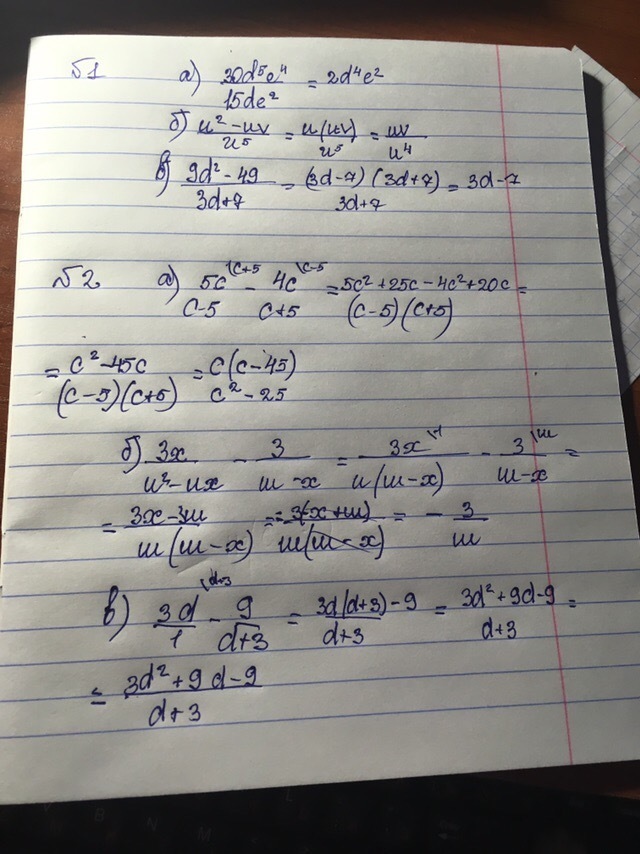 №1 а) 20d⁵e⁴/15de² = 2d⁴e²
б) u²-uv/u⁵ = u(u-v)/u⁵ = uv/u⁴
в) 9d²-49/3d+7 = (3d-7)(3d+7)/3d+7 = 3d-7
№2 а) 5c\c+5/c-5 - 4c\c-5/c+5 = 5c²+25c-4c²+20c/(c-5)(c+5) =
= c²-45c/(c-5)(c+5) = c(c-45)/c²-25
б) 3x/u²-ux - 3/ш-x = 3x\1/u(ш-x) - 3\ш/ш-x =
= 3x-3ш/ш(ш-x) = -3(-x+ш)/ш(ш-x) = -3/ш
в) 3d\d+3/1 - 9/d+3 = 3d(d+3)-9/d+3 = 3d²+9d-9/d+3 =
= 3d²+9d-9/d+3